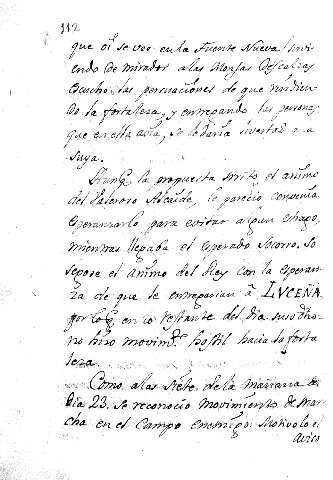 112
que oi se vee en la Fuente Nueva sirvi-
endo de mirador a las Monjas Descalzas
Escucho las persuaciones de que rindien-
do la fortaleza, y entregando las personas
que en ella avia, se le daria livertad a la
suya.
Aunq. la propuesta irrito el animo
del Valeroso Alcaide, le parecio convenia
esperanzarlo para evitar algun choqe,
mientras llegaba el esperado Socorro. So-
segose el animo del Rey con la esperan-
za de que se entregarian á LUCENA
por lo q. en lo restante del dia
no hizo movim.to hostil hacia la forta-
leza.
Como a las siete de la mañana de
dia 23. se reconocio movimiento de mar-
cha en el campo enemigo. Motivolo el
aviso